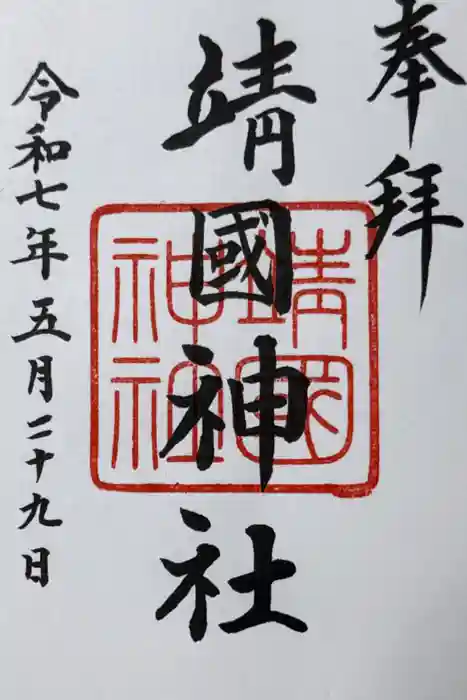 奉拝
靖國神社
靖國神社
令和七年五月二十九日